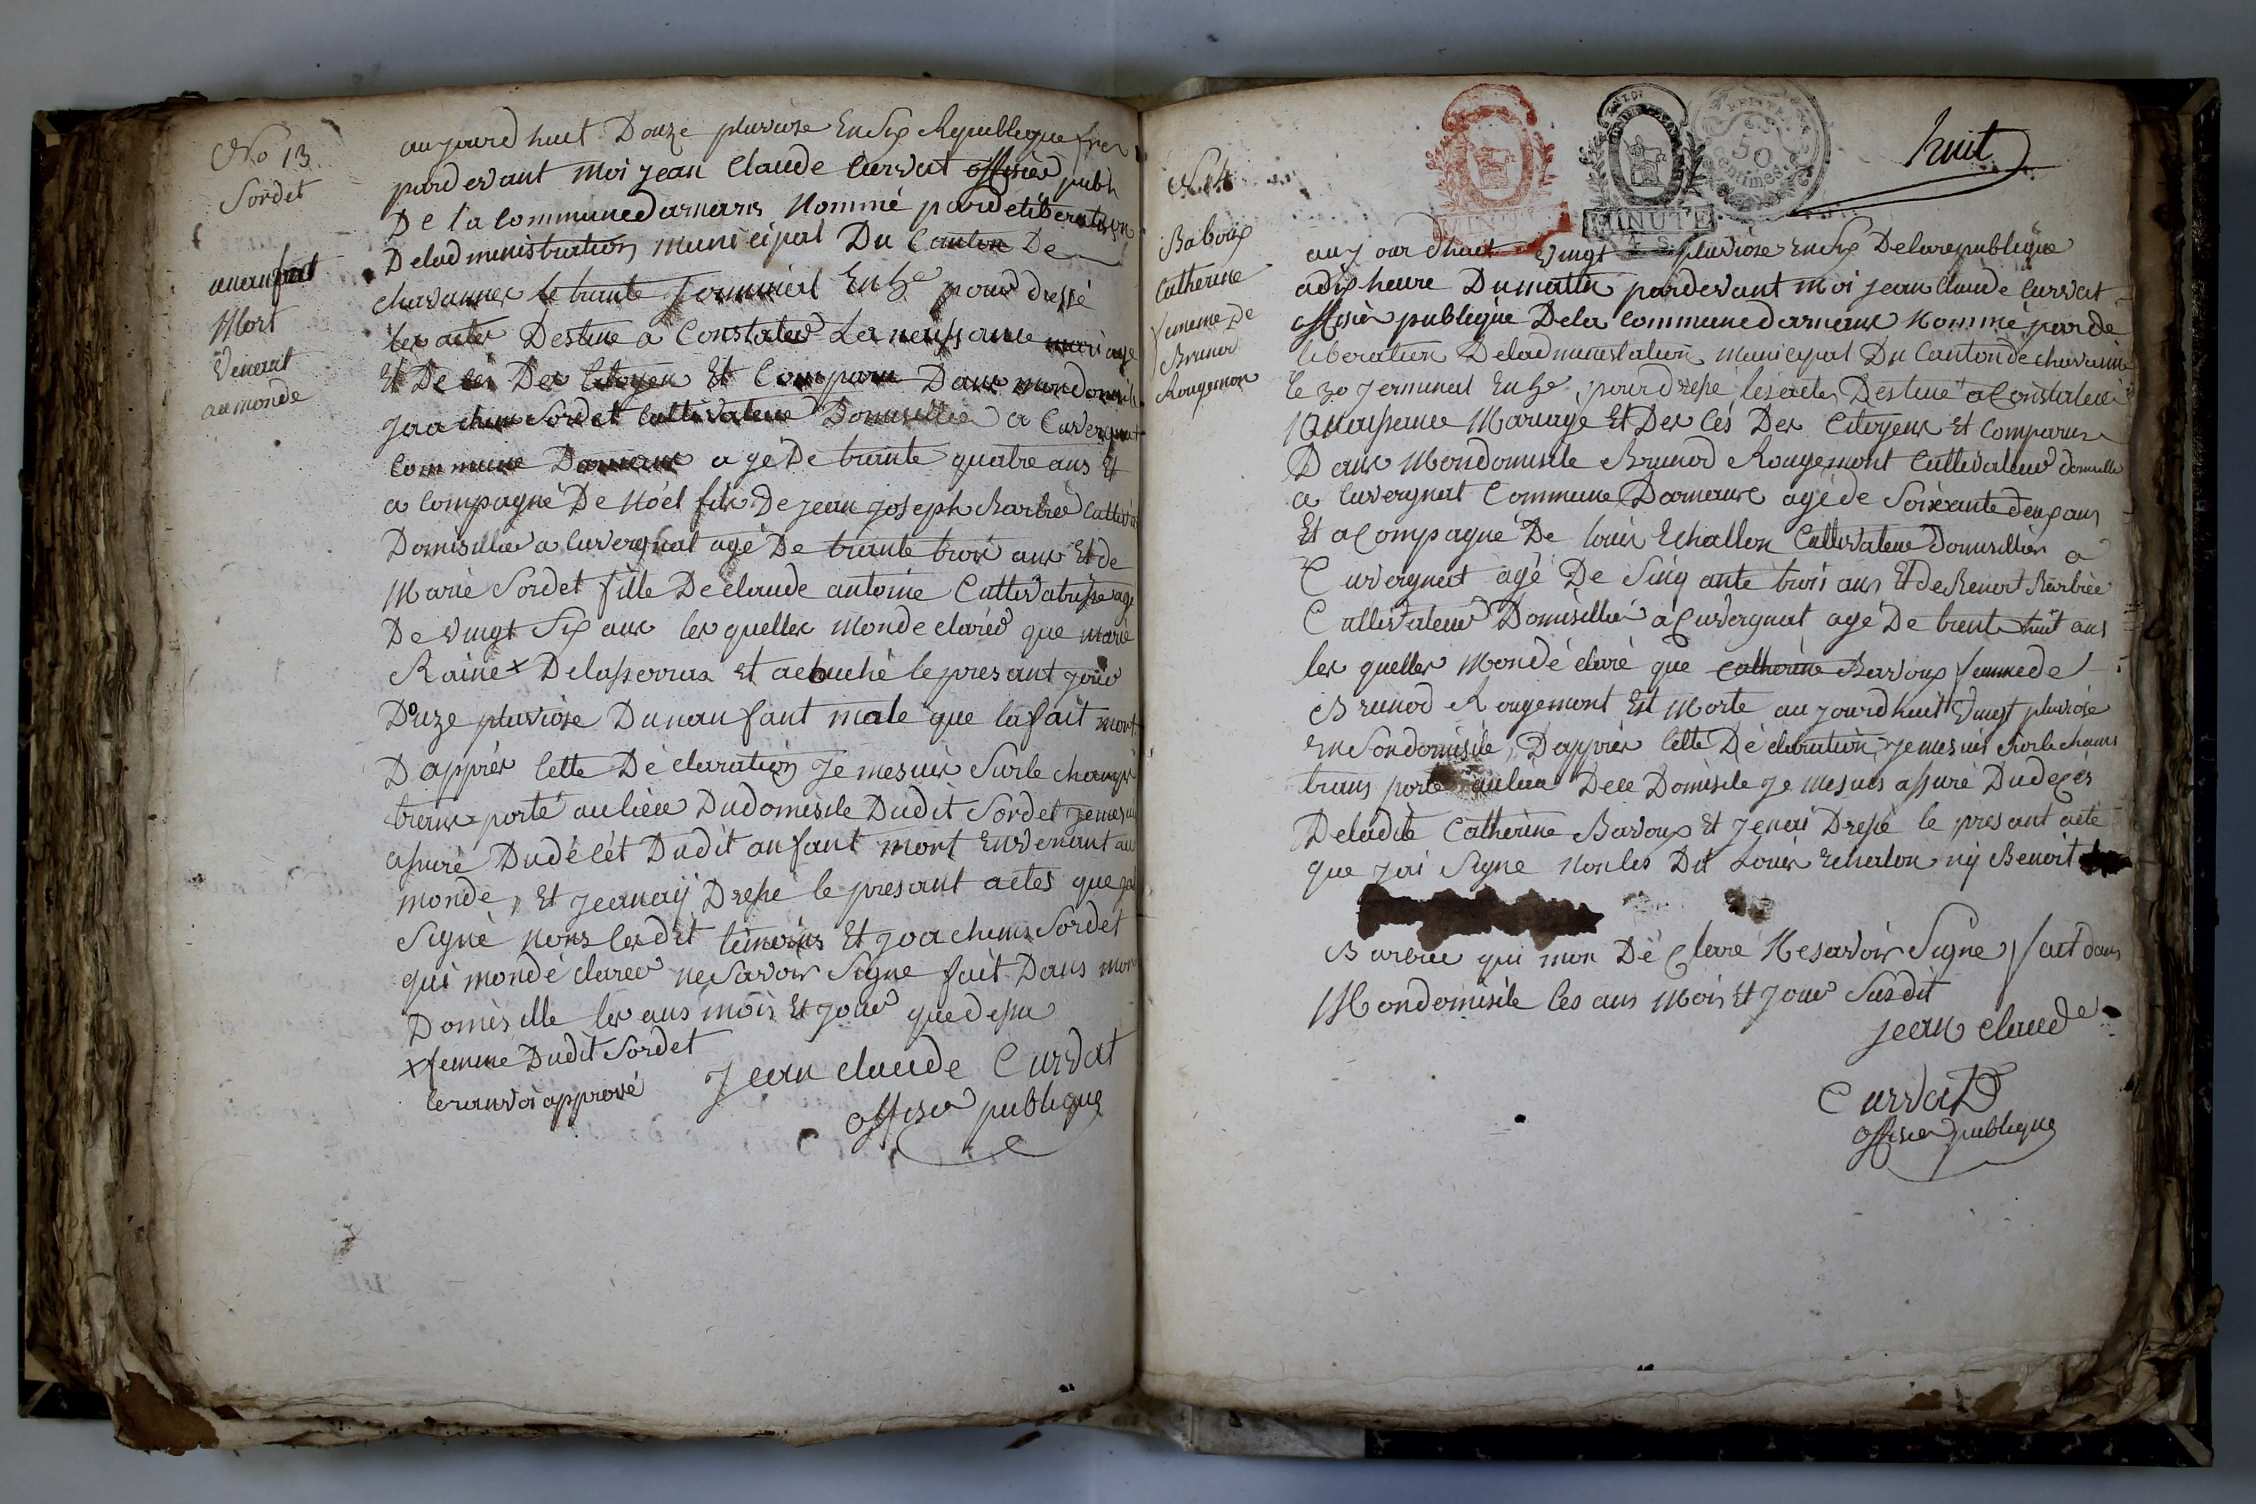 No 13
Sordet
anenfant
Mort
venant
au monde
aujourd huit Douze pluviose En Six Republique fran
pardevant moi jean Claude Curvat officier publi
De la Commune darnans Nommé par deliberation
Deladministration municipal Du Canton De
chavannes le trante Jerminial En 5e pour dressé
les actes Destine a Constater Les neissance mariage
Et De cés Des Citoyen Et Comparu Dans mon domisile
joachim Sordet Cultivateur Domicillié a Cuvergnat
Commune Darnans agé De trante quatre ans Et
a Compagné De Noël fils De jean joseph Barbié Cultivat
Domisillié a Cuvergnat agé De trante trois ans Et de
Marie Sordet fille De claude antoine Cultivatrisse agé
De vingt Six ans les quelles monde clarér que marie
Raine x Delasserras et acouché le presant jour
Douze pluviose Dunanfant male que la fait mort
D apprés cette Dé claration Je mesuis Surle champs
trans porté aulieu Dudomisile Dudit Sordet je mesuis
assuré Dudé cét Dudit anfant mort En venant au
monde, Et jeanaij Dressé le presant actes que jai
Signé nons lesdit témoins Et joachims Sordet
qui mondé clarer ne Savoir Signe fait Dans mon
Domisille les ans mois Et jour que dessu
x femme Dudit Sordet
leranvoi approuvé
Jean claude Curvat
officier publique
huit
MINUTE
MINUTE
4 S.
50
Centimes
No 14
Baboux
Catherine
femme De
Brunod
Rougemon
aujourdhuit vingt pluviose En Six Delarepublique
adix heure Dumattin pardevant moi jean claude Curvat
officier publique Dela Commune darnans Nommé par de
liberation Deladministation municipal Du Canton de chavanne
le 30 jerminal En 5e pour dressé les actes Destiné a Constater
Naissance Mariage Et Des cés Des Citoyens Et Comparus
Dans Mondomisile Brunod Rougemont Cultivateur domicillé
a Cuvergnat Commune Darnans agé de Soixante deux ans
Et a Compagné De louis Echallon Cultivateur domisillié a
Cuvergnat agé De Sinq ante trois ans Et de Benoit Barbié
Cultivateur Domisillié a Cuvergnat agé De trente huit ans
les quelles Mondé claré que Catherine Bavoux femme de
Brunod Rougemont Est Morte aujourdhuit vingt pluviose
En Sondomisile, Dapprés Cette Dé claration, je mesuis Surle chams
trans porté aulieu Dece Domisile je mesuis assuré Dudecés
Deladite Catherine Bavoux Et jenai Dressé le presant acte
que jai Signé Nonles Dit Louis Echalon nij Benoit
Barbié qui mon Dé Claré Ne savoir Signé, fait dans
Mondomisile les ans Mois Et jour Susdit
jean claude
Curvat
officier publique